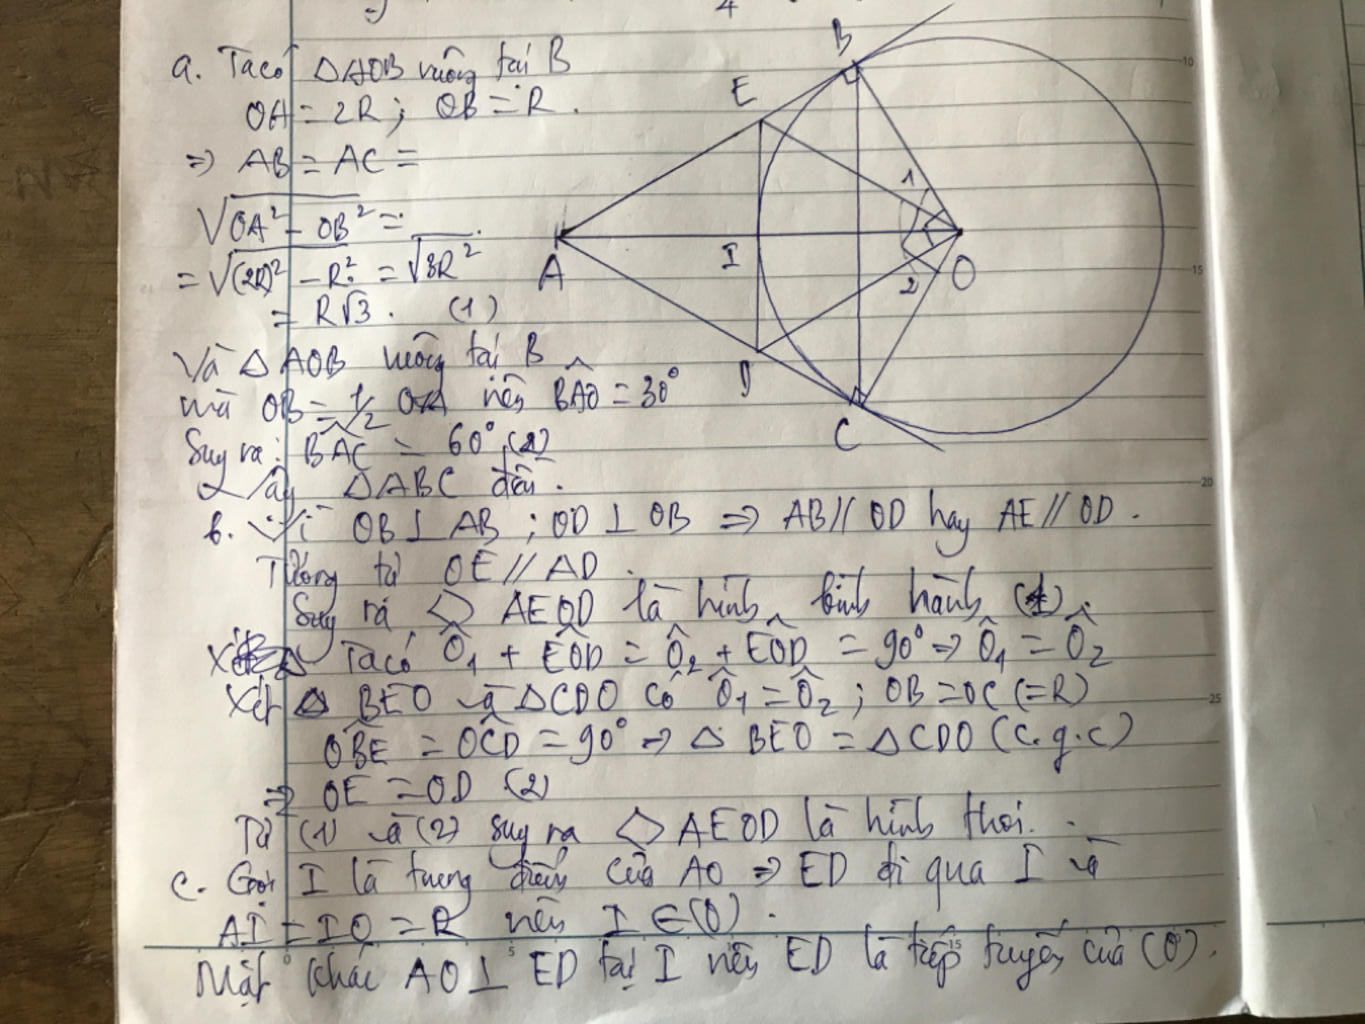 4
a. Ta có △AOB vuông tại B
OA = 2R; OB = R.
⇒ AB = AC =
√(OA² - OB²) =
= √((2R)² - R²) = √(3R²)
= R√3. (1)
Và △AOB vuông tại B
mà OB = 1/2 OA nên BÂO = 30°
Suy ra: BÂC = 60° (2)
Vậy △ABC đều.
B
E
1
A
I
2
O
D
C
b. Vì OB ⊥ AB; OD ⊥ OB ⇒ AB // OD hay AE // OD.
Tương tự OE // AD.
Suy ra ◇ AEOD là hình bình hành (1).
Ta có Ô₁ + EÔD = Ô₂ + EÔD = 90° ⇒ Ô₁ = Ô₂
Xét △ BEO và △CDO có Ô₁ = Ô₂; OB = OC (=R)
OB̂E = OĈD = 90° ⇒ △ BEO = △CDO (c.g.c)
⇒ OE = OD (2)
Từ (1) và (2) suy ra ◇ AEOD là hình thoi.
c. Gọi I là trung điểm của AO ⇒ ED đi qua I và
AI = IO = R nên I ∈ (O).
Mặt khác AO ⊥ ED tại I nên ED là tiếp tuyến của (O).
10
15
20
25
0
5
15